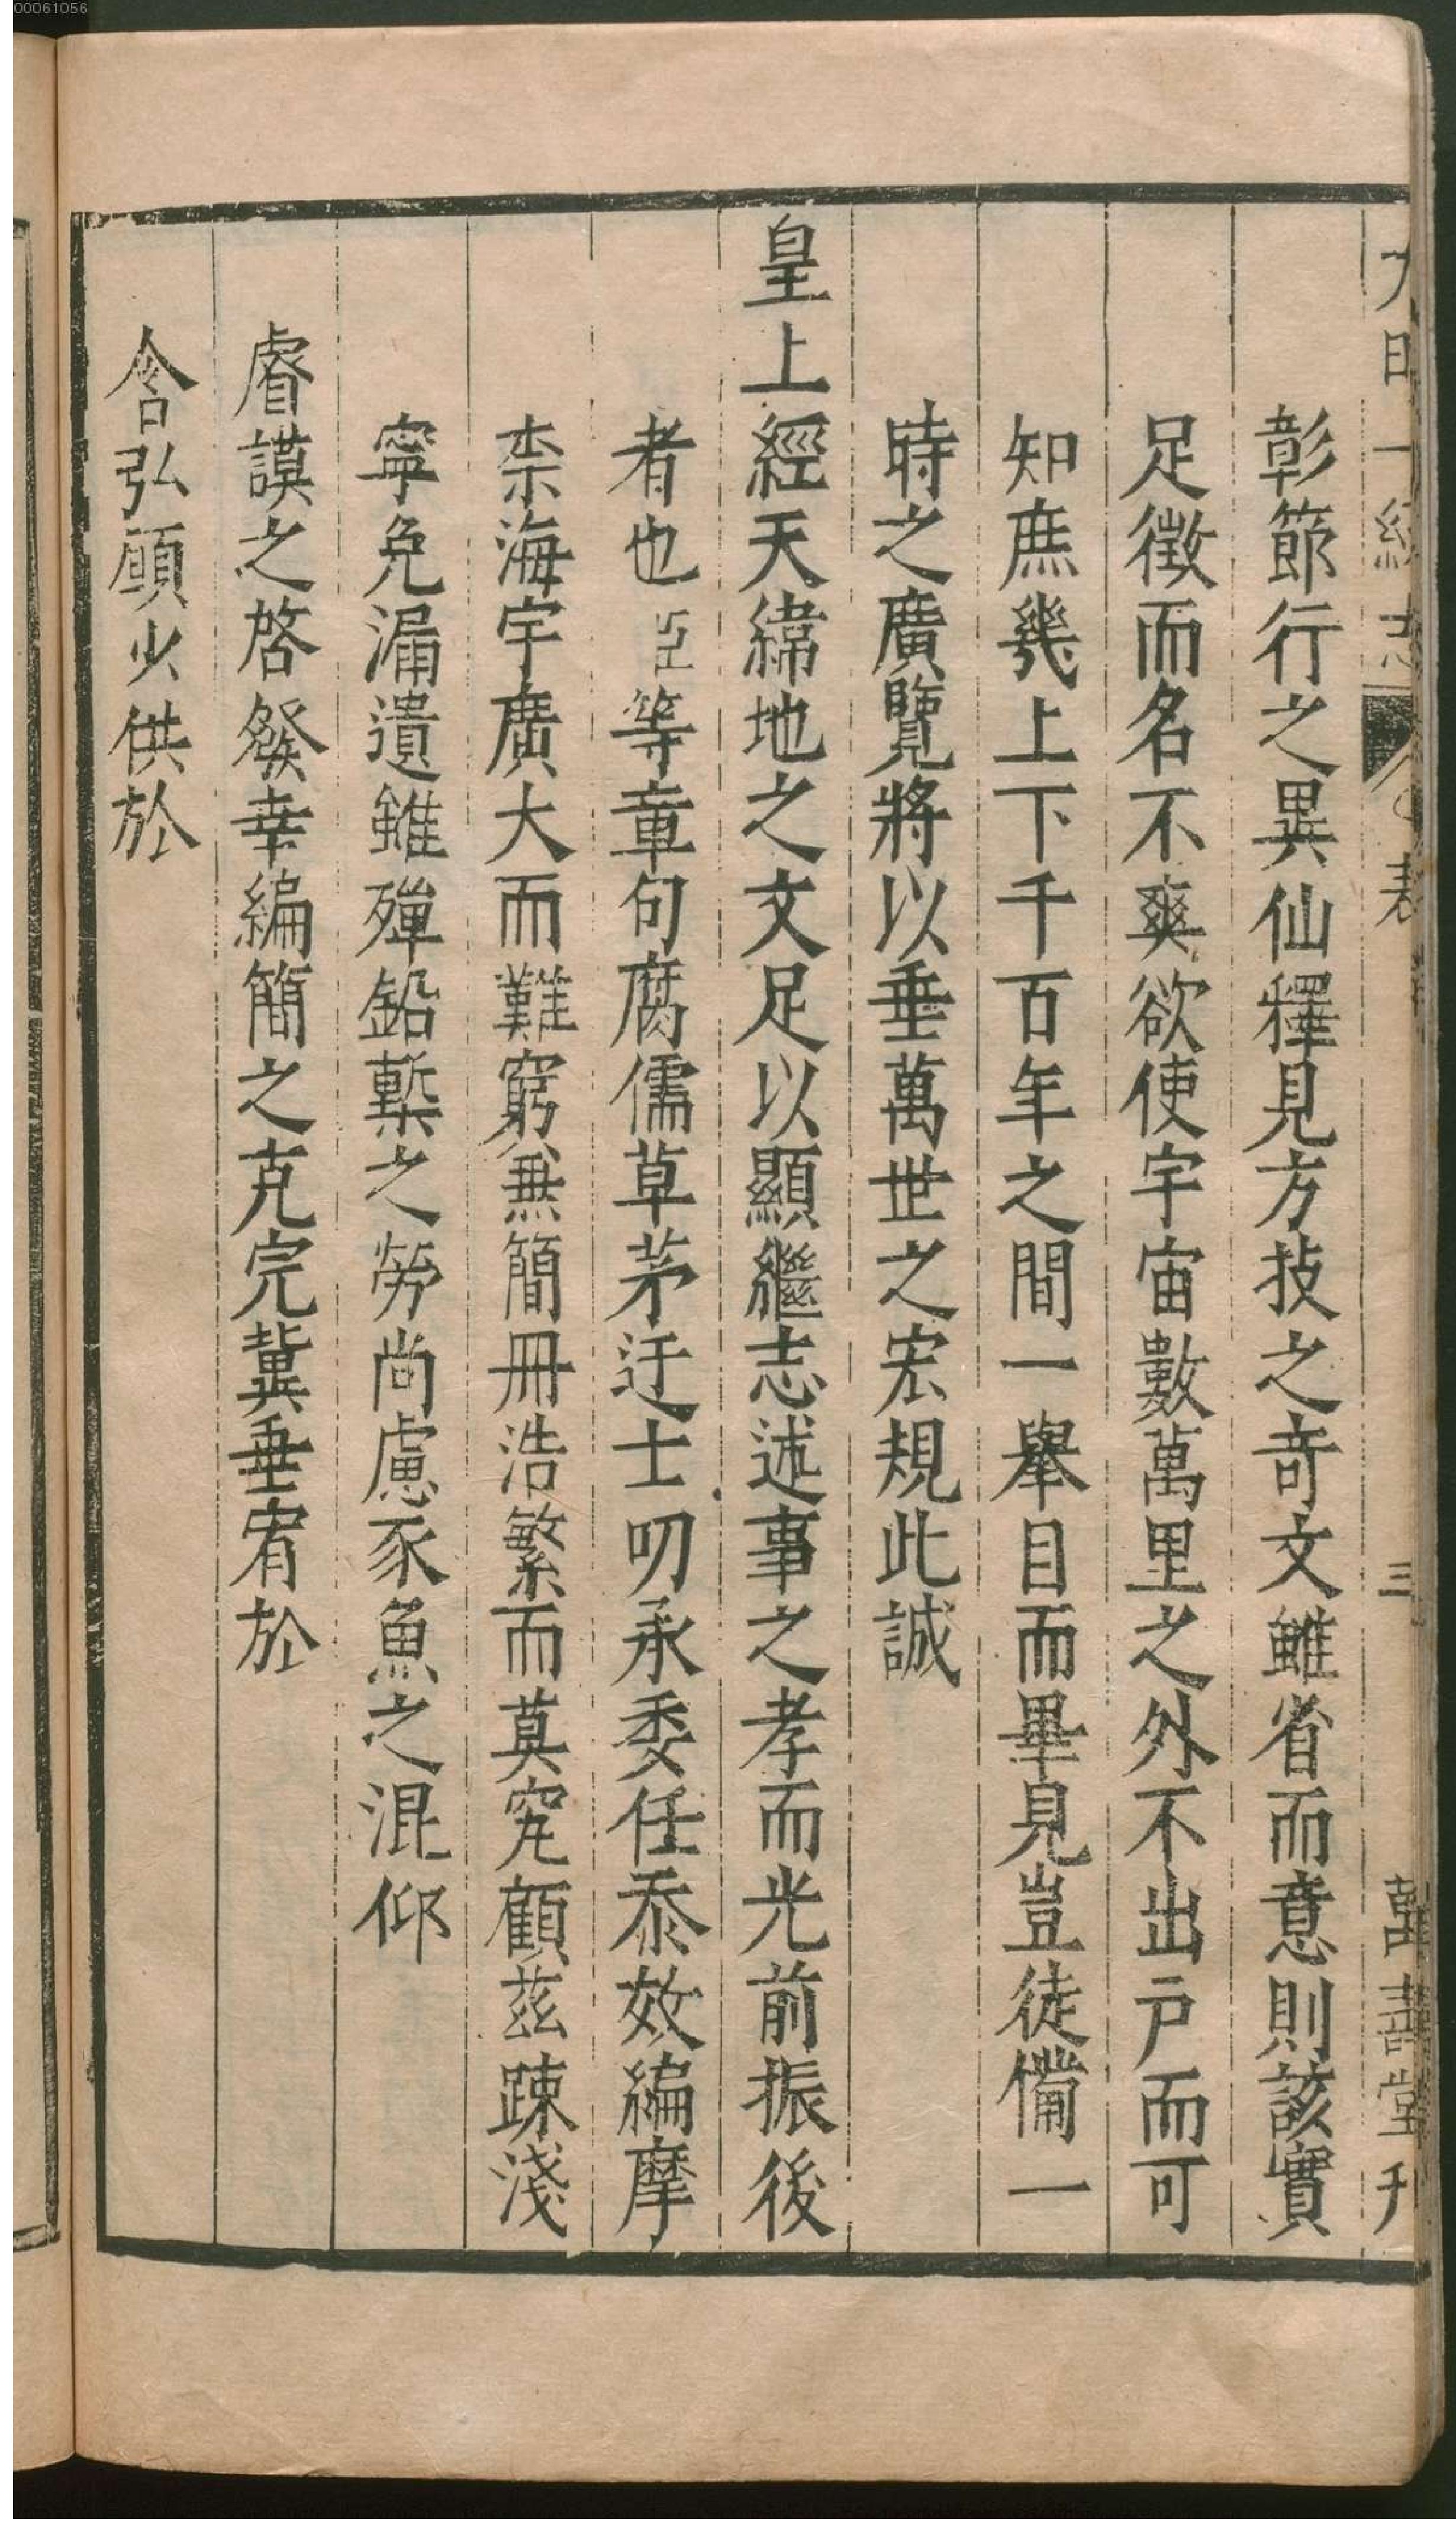 00061056
大明一統志 表 三 萬壽堂刊
彰節行之異仙釋見方技之奇文雖省而意則該實
足徵而名不爽欲使宇宙數萬里之外不出戶而可
知庶幾上下千百年之間一舉目而畢見豈徒備一
時之廣覽將以垂萬世之宏規此誠
皇上經天緯地之文足以顯繼志述事之孝而光前振後
者也臣等章句腐儒草茅迂士叨承委任忝效編摩
柰海宇廣大而難窮兼簡冊浩繁而莫究顧茲踈淺
寧免漏遺雖殫鉛槧之勞尚慮豕魚之混仰
睿謨之啓發幸編簡之克完冀垂宥於
含弘願少供於